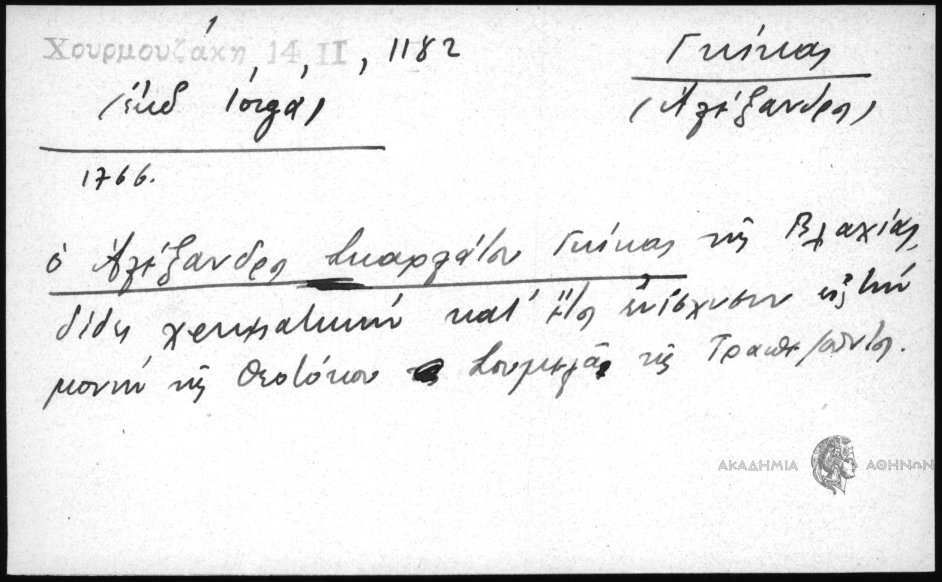 Χουρμουζάκη 14 II, 1182
(ἔκδ Ἰόργα)
Γκίκας
(Ἀλέξανδρος)
1766.
ὁ Ἀλέξανδρος Σκαρλάτου Γκίκας τῆς Βλαχίας,
δίδει χρηματικὴν κατ' ἔτος ἐνίσχυσιν εἰς τὴν
μονὴν τῆς Θεοτόκου Σουμελᾶ τῆς Τραπεζοῦντος.
ΑΚΑΔΗΜΙΑ ΑΘΗΝΩΝ